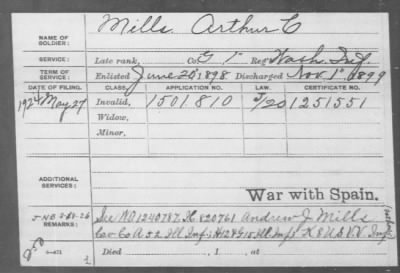 NAME OF SOLDIER: Mills, Arthur C
SERVICE: Late rank, Co. G 1" Reg't Wash. Inf.
TERM OF SERVICE: Enlisted June 20 1898 Discharged Nov. 1" 1899
DATE OF FILING. CLASS. APPLICATION NO. LAW. CERTIFICATE NO.
1924 May 27 Invalid, 1501.810 J/20 1251551
Widow,
Minor,
ADDITIONAL SERVICES:
War with Spain.
REMARKS: See No 1240787. H. 820761 Andrew J Mills
Co A 52 Ill Inf; H 124 G 15 Ill Inf; K 8 U.S. V.V. Inf
Died , 1 , at